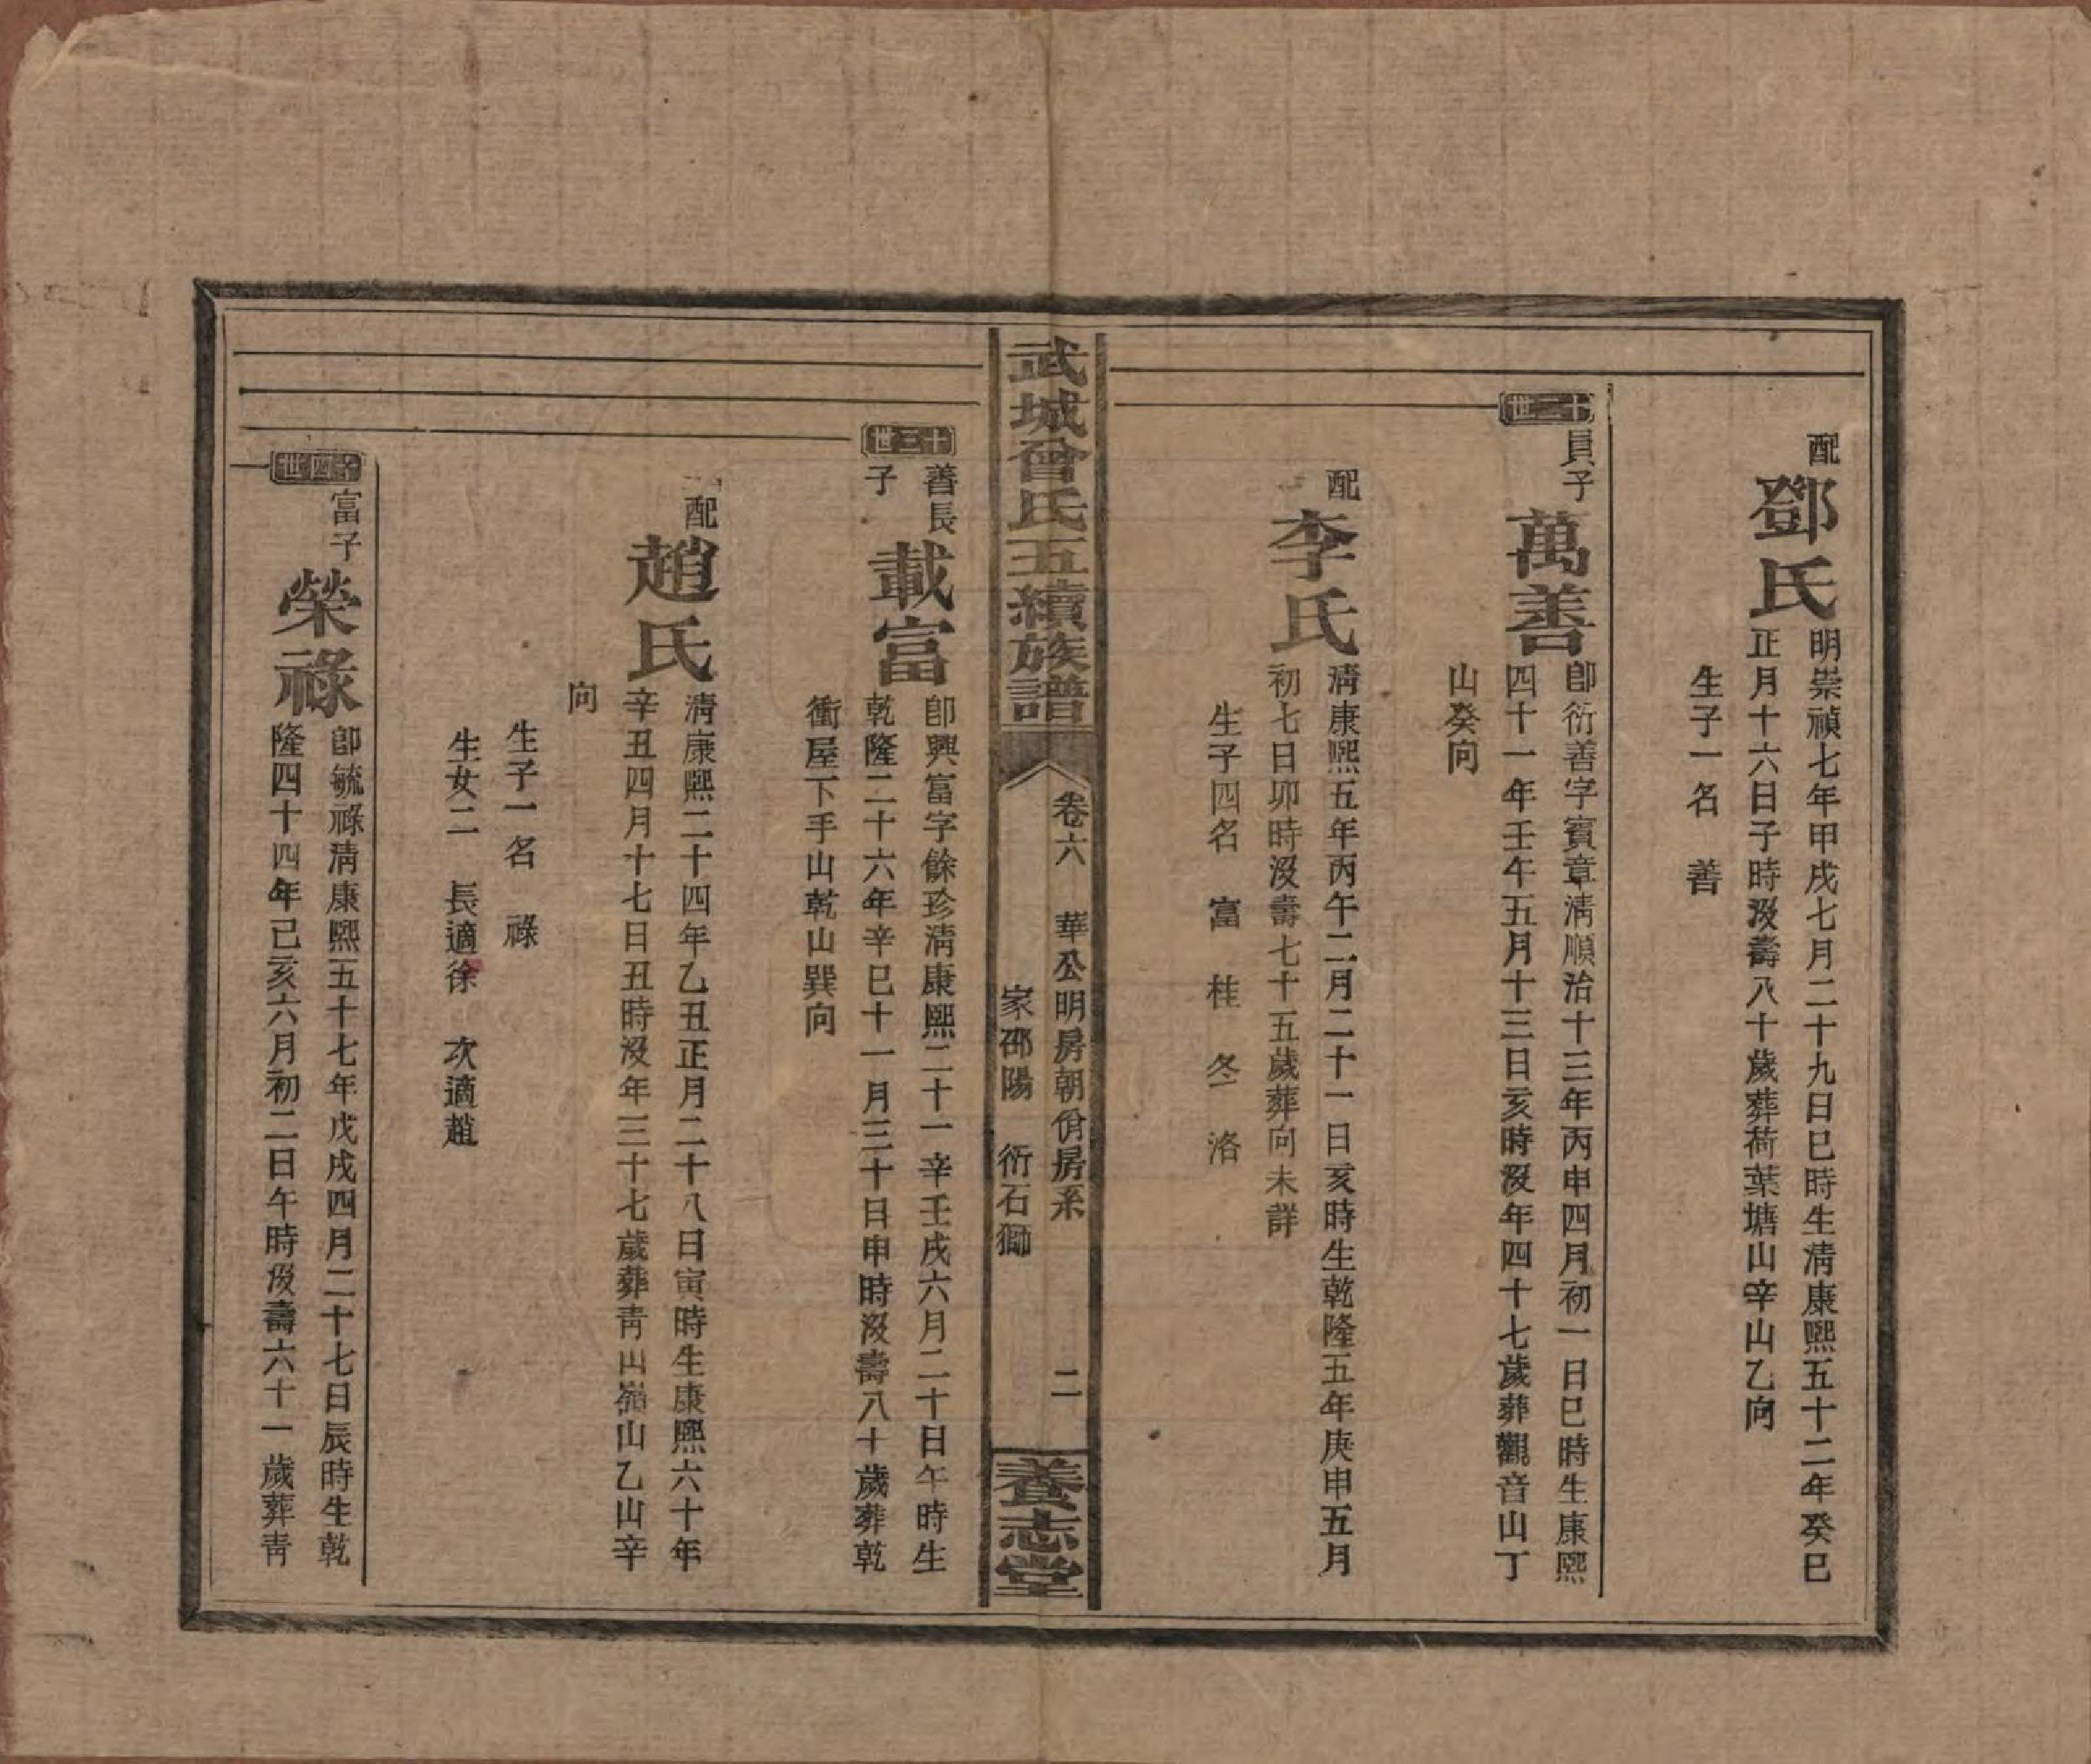 配
鄧氏
明崇禎七年甲戌七月二十九日巳時生清康熙五十二年癸巳
正月十六日子時沒壽八十歲葬荷葉塘山辛山乙向
生子一名 善
十二世
員子
萬善
卽衍善字賓章清順治十三年丙申四月初一日巳時生康熙
四十一年壬午五月十三日亥時沒年四十七歲葬觀音山丁
山癸向
配
李氏
清康熙五年丙午二月二十一日亥時生乾隆五年庚申五月
初七日卯時沒壽七十五歲葬向未詳
生子四名 富 桂 冬 洛
武城曾氏五續族譜
卷六 華公明房朝佾房系
家邵陽 衍石獅
二
養志堂
十三世
善長
子
載富
卽興富字餘珍清康熙二十一辛壬戌六月二十日午時生
乾隆二十六年辛巳十一月三十日申時沒壽八十歲葬乾
衝屋下手山乾山巽向
配
趙氏
清康熙二十四年乙丑正月二十八日寅時生康熙六十年
辛丑四月十七日丑時沒年三十七歲葬青山嶺山乙山辛
向
生子一名 祿
生女二 長適徐 次適趙
十四世
富子
榮祿
卽毓祿清康熙五十七年戊戌四月二十七日辰時生乾
隆四十四年己亥六月初二日午時沒壽六十一歲葬青